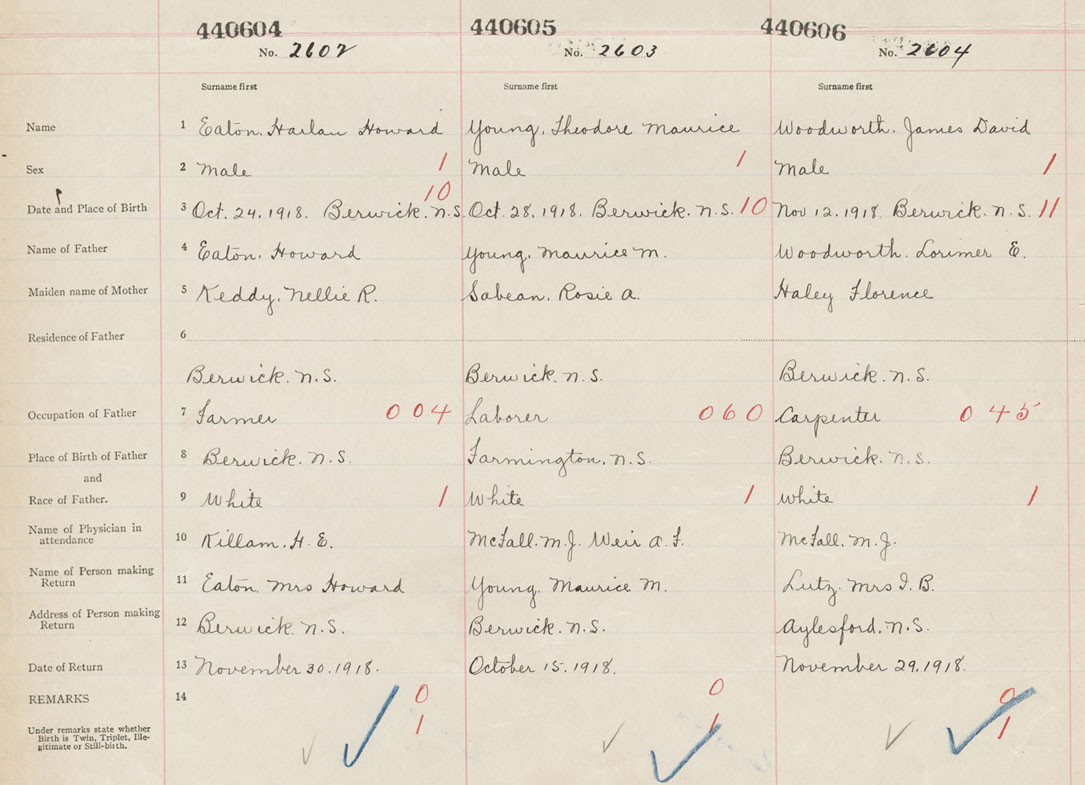 440604 440605 440606
No. 2602 No. 2603 No. 2604
Surname first Surname first Surname first
Name 1 Eaton. Harlan Howard Young. Theodore Maurice Woodworth. James David
Sex 2 Male 1 Male 1 Male 1
10
Date and Place of Birth 3 Oct. 24. 1918. Berwick. N.S. Oct. 28. 1918. Berwick. N.S. 10 Nov 12. 1918. Berwick. N.S. 11
Name of Father 4 Eaton. Howard Young. Maurice M. Woodworth. Lorimer E.
Maiden name of Mother 5 Keddy. Nellie R. Sabean. Rosie A. Haley Florence
Residence of Father 6
Berwick. N.S. Berwick. N.S. Berwick. N.S.
Occupation of Father 7 Farmer 004 Laborer 060 Carpenter 045
Place of Birth of Father 8 Berwick. N.S. Farmington. N.S. Berwick. N.S.
and
Race of Father. 9 White 1 White 1 White 1
Name of Physician in
attendance 10 Killam. H. E. McFall. M. J. Weir A. F. McFall. M. J.
Name of Person making
Return 11 Eaton. Mrs Howard Young. Maurice M. Lutz. Mrs I. B.
Address of Person making
Return 12 Berwick. N.S. Berwick. N.S. Aylesford. N.S.
Date of Return 13 November 30. 1918. October 15. 1918. November 29. 1918.
REMARKS 14 0 0 0
Under remarks state whether
Birth is Twin, Triplet, Ille-
gitimate or Still-birth. 1 1 1